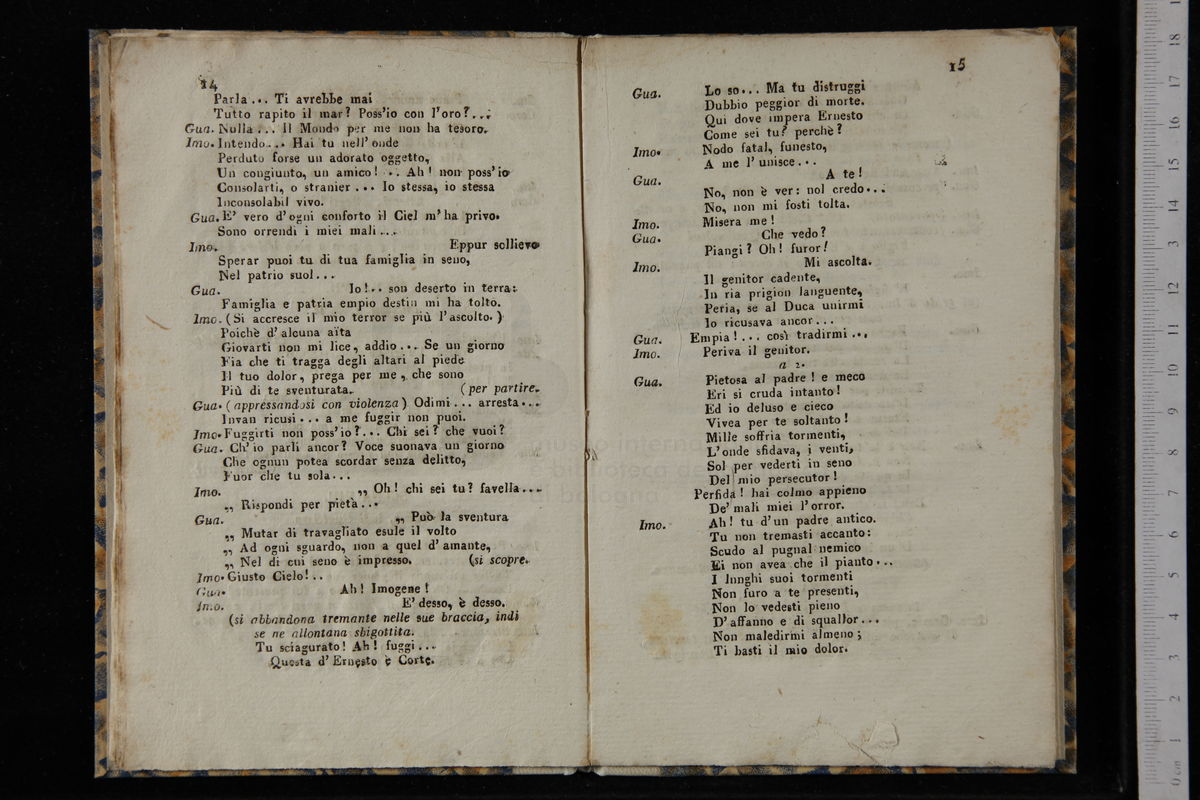 14
Parla... Ti avrebbe mai
Tutto rapito il mar? Poss'io con l'oro?...
Gua. Nulla... Il Mondo per me non ha tesoro.
Imo. Intendo... Hai tu nell'onde
Perduto forse un adorato oggetto,
Un congiunto, un amico! .. Ah! non poss'io
Consolarti, o stranier... Io stessa, io stessa
Inconsolabil vivo.
Gua. E' vero d'ogni conforto il Ciel m'ha privo.
Sono orrendi i miei mali...
Imo. Eppur sollievo
Sperar puoi tu di tua famiglia in seno,
Nel patrio suol...
Gua. Io!.. son deserto in terra:
Famiglia e patria empio destin mi ha tolto.
Imo. (Si accresce il mio terror se più l'ascolto.)
Poichè d'alcuna aita
Giovarti non mi lice, addio... Se un giorno
Fia che ti tragga degli altari al piede
Il tuo dolor, prega per me, che sono
Più di te sventurata. (per partire.
Gua. (appressandosi con violenza) Odimi... arresta...
Invan ricusi... a me fuggir non puoi.
Imo. Fuggirti non poss'io?... Chi sei? che vuoi?
Gua. Ch'io parli ancor? Voce suonava un giorno
Che ognun potea scordar senza delitto,
Fuor che tu sola...
Imo. ,, Oh! chi sei tu? favella...
,, Rispondi per pietà...
Gua. ,, Può la sventura
,, Mutar di travagliato esule il volto
,, Ad ogni sguardo, non a quel d'amante,
,, Nel di cui seno è impresso. (si scopre.
Imo. Giusto Cielo!..
Gua. Ah! Imogene!
Imo. E' desso, è desso.
(si abbandona tremante nelle sue braccia, indi
se ne allontana sbigottita.
Tu sciagurato! Ah! fuggi...
Questa d'Ernesto è Corte.
15
Gua. Lo so... Ma tu distruggi
Dubbio peggior di morte.
Qui dove impera Ernesto
Come sei tu? perchè?
Imo. Nodo fatal, funesto,
A me l'unisce...
Gua. A te!
No, non è ver: nol credo...
No, non mi fosti tolta.
Imo. Misera me!
Gua. Che vedo?
Piangi? Oh! furor!
Imo. Mi ascolta.
Il genitor cadente,
In ria prigion languente,
Peria, se al Duca unirmi
Io ricusava ancor...
Gua. Empia!... così tradirmi...
Imo. Periva il genitor.
a 2.
Gua. Pietosa al padre! e meco
Eri si cruda intanto!
Ed io deluso e cieco
Vivea per te soltanto!
Mille soffria tormenti,
L'onde sfidava, i venti,
Sol per vederti in seno
Del mio persecutor!
Perfida! hai colmo appieno
De' mali miei l'orror.
Imo. Ah! tu d'un padre antico.
Tu non tremasti accanto:
Scudo al pugnal nemico
Ei non avea che il pianto...
I lunghi suoi tormenti
Non furo a te presenti,
Non lo vedesti pieno
D'affanno e di squallor...
Non maledirmi almeno;
Ti basti il mio dolor.